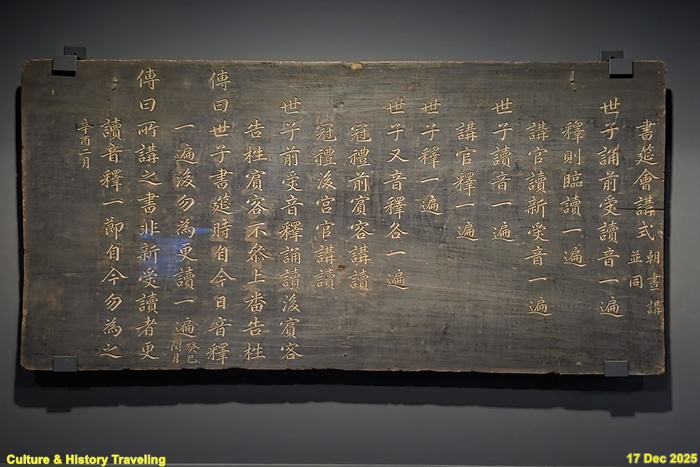 書筵會講式 朝晝講並同
世子誦前受讀音一遍
釋則臨讀一遍
講官讀新受音一遍
世子讀音一遍
講官釋一遍
世子釋一遍
世子又音釋各一遍
冠禮前賓客講讀
冠禮後宮官講讀
世子前受音釋誦讀後賓客
告栍賓客不參上番告栍
傳曰世子書筵時自今日音釋
一遍後勿為更讀一遍 癸巳閏月
傳曰所講之書非新受讀者更
讀音釋一節自今勿為之
辛酉二月
Culture & History Traveling
17 Dec 2025